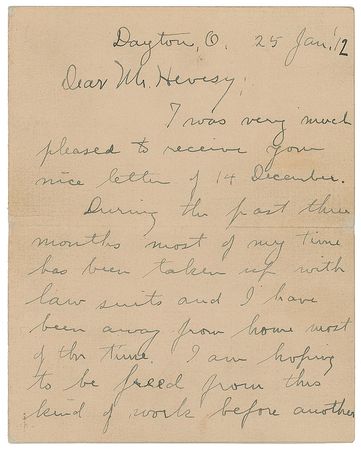 Dayton, O. 25 Jan. '12
Dear Mr. Hevesy;
I was very much
pleased to receive your
nice letter of 14 December.
During the past three
months most of my time
has been taken up with
law suits and I have
been away from home most
of the time. I am hoping
to be freed from this
kind of work before another